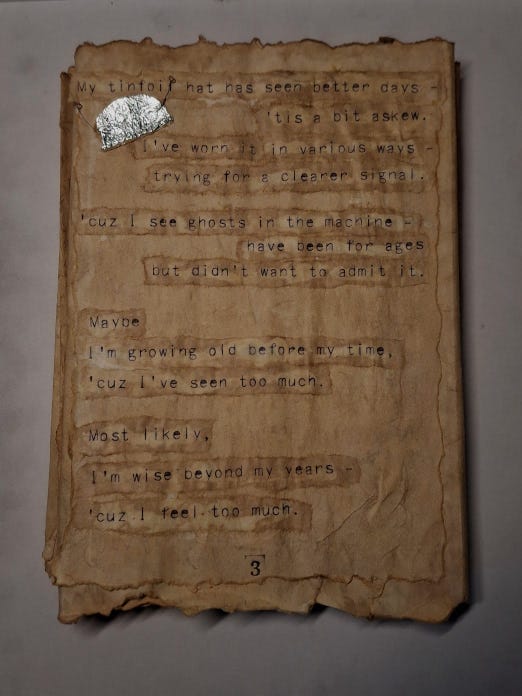 My tinfoil hat has seen better days -
'tis a bit askew.
I've worn it in various ways -
trying for a clearer signal.
'cuz I see ghosts in the machine -
have been for ages
but didn't want to admit it.
Maybe
I'm growing old before my time,
'cuz I've seen too much.
Most likely,
I'm wise beyond my years -
'cuz I feel too much.
3